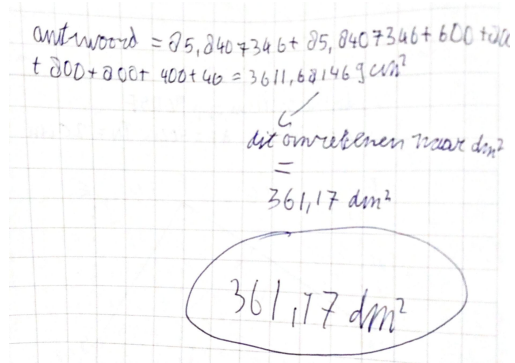 antwoord = 85,8407346 + 85,8407346 + 600 + 800
+ 800 + 800 + 400 + 40 = 3611,681469 cm²
dit omrekenen naar dm²
=
361,17 dm²
361,17 dm²